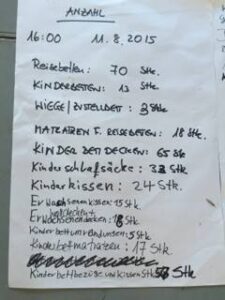 ANZAHL
16:00 11.8.2015
Reisebetten: 70 Stk.
KINDERBETTEN: 13 Stk
WIEGE/ZUSTELLBETT: 3 Stk
MATRATZEN F. REISEBETTEN: 18 Stk.
KINDER BETTDECKEN: 65 Stk
Kinderschlafsäcke: 33 Stk.
Kinderkissen: 24 Stk.
Erwachsenenkissen 15 Stk.
Erwachsenendecken: Stk.
Kinderbettumrandungen: 5 Stk.
Kinderbettmatratzen: 17 Stk.
Kinderbettbezüge und Kissen Stk Stk.